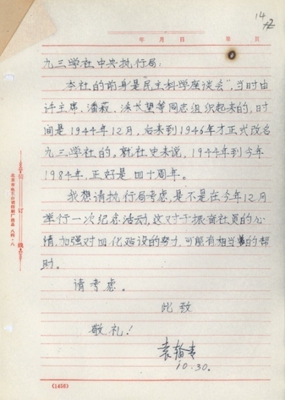 14
年 月 日 第 页
九三学社中央执行局:
本社的前身是“民主科学座谈会”,当时由
许主席,潘菽,涂长望等同志组织起来的,时
间是1944年12月,后来到1946年才正式改名
九三学社的,就社史来说,1944年到今年
1984年,正好是四十周年。
我想请执行局考虑,是不是在今年12月
举行一次纪念活动,这对于振奋社员的心
情,加强对四化建设的努力,可能有相当的帮
助。
请考虑。
此致
敬礼!
袁翰青
10.30.
(1456)